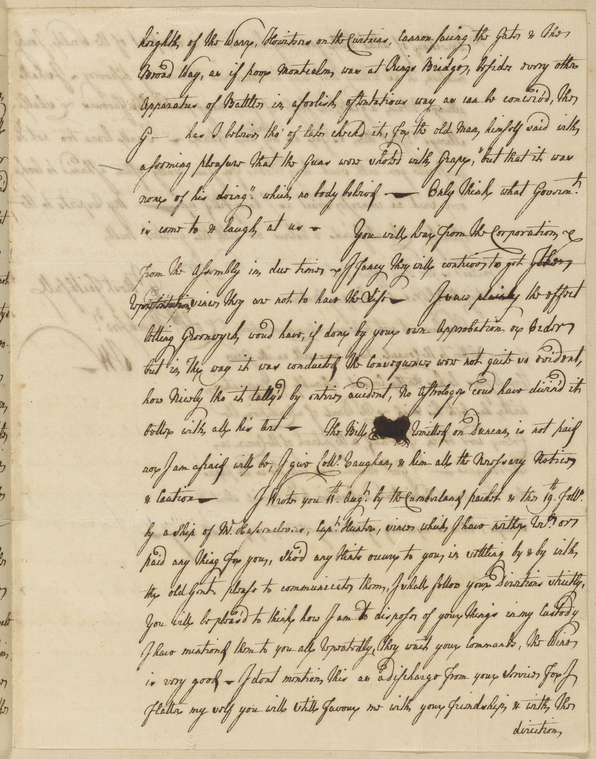 heighth, of the Warrs, Howitzers on the Curtains, Cannon facing the Gates & the
Broad Way, as if poor Montcalm, was at Kings Bridge, besides every other
Apparatus of Battles in, a foolish, ostentatious way as can be conceiv'd, the
G— has I believe tho' of late check'd it, for the old Man, himself said with,
a seeming pleasure that the Guns were shoted with Grape, "but that it was
none of his doing" which, no body believed — Only think what Governmt.
is come to & laugh, at us — You will hear from the Corporation, &
from the Assembly in, due time & I fancy they will contrive to get
since they are not to have the — I saw the effect
letting Greenwych, woud have, if done by your own Approbation or Order
but in, the way it was conducted the Consequences were not quite so evident,
how nicely tho it tally'd by entire accident, No Astrologer coud have divin'd it
better with, all his Art — The Bill remitted on Duncan, is not paid
nor I am afraid will be, I give Coll. Vaughan, & him all the Necessary Notices
& Caution — I Wrote you 11th. Augt. by the Cumberland packet & the 19th. Do.
by a Ship of Mr. Capt. Hunter, since which, I have neither Recd. or
paid any thing for you, shoud any hints occur to you, in settling by & by with,
the old Gent. please to communicate them, I shall follow your Directions strictly,
You will be pleas'd to think how I am to dispose of your things in my Custody
I have mentioned them to you all repeatedly, they wait your Commands, the Wine
is very good — I dont mention, this as a discharge from your Service For I
Flatter my self you will still Favour me with your Friendship & with, the
direction,